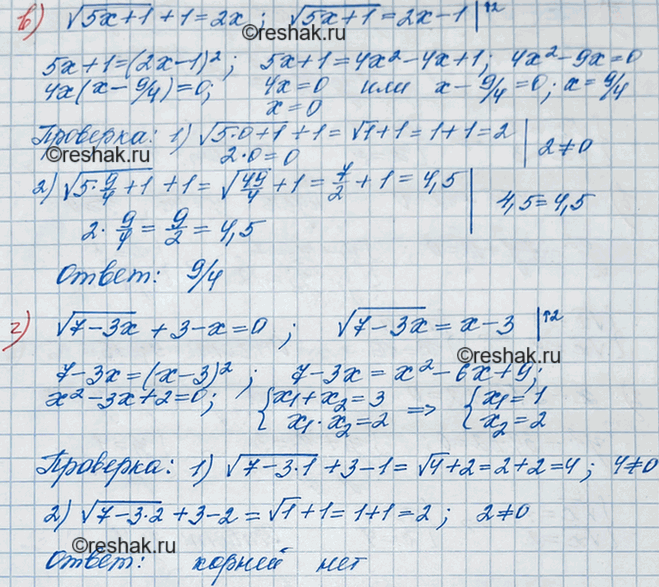 в) √5x+1 + 1 = 2x ; √5x+1 = 2x-1 |↑2
5x+1=(2x-1)²; 5x+1=4x²-4x+1; 4x²-9x=0
4x(x-9/4)=0; 4x=0 или x-9/4=0; x=9/4
x=0
©reshak.ru ©reshak.ru
Проверка: 1) √5·0+1 + 1 = √1+1=1+1=2 | 2≠0
2·0=0
2) √5·9/4+1 + 1 = √49/4 + 1 = 7/2 + 1 = 4,5 | 4,5=4,5
2·9/4 = 9/2 = 4,5
Ответ: 9/4
г) √7-3x + 3-x=0 ; √7-3x = x-3 |↑2
©reshak.ru
7-3x=(x-3)² ; 7-3x = x²-6x+9;
x²-3x+2=0; {x₁+x₂=3 x₁·x₂=2 => {x₁=1 x₂=2
Проверка: 1) √7-3·1 + 3-1 = √4+2=2+2=4 ; 4≠0
2) √7-3·2 + 3-2 = √1+1=1+1=2 ; 2≠0
©reshak.ru ©reshak.ru
Ответ: корней нет